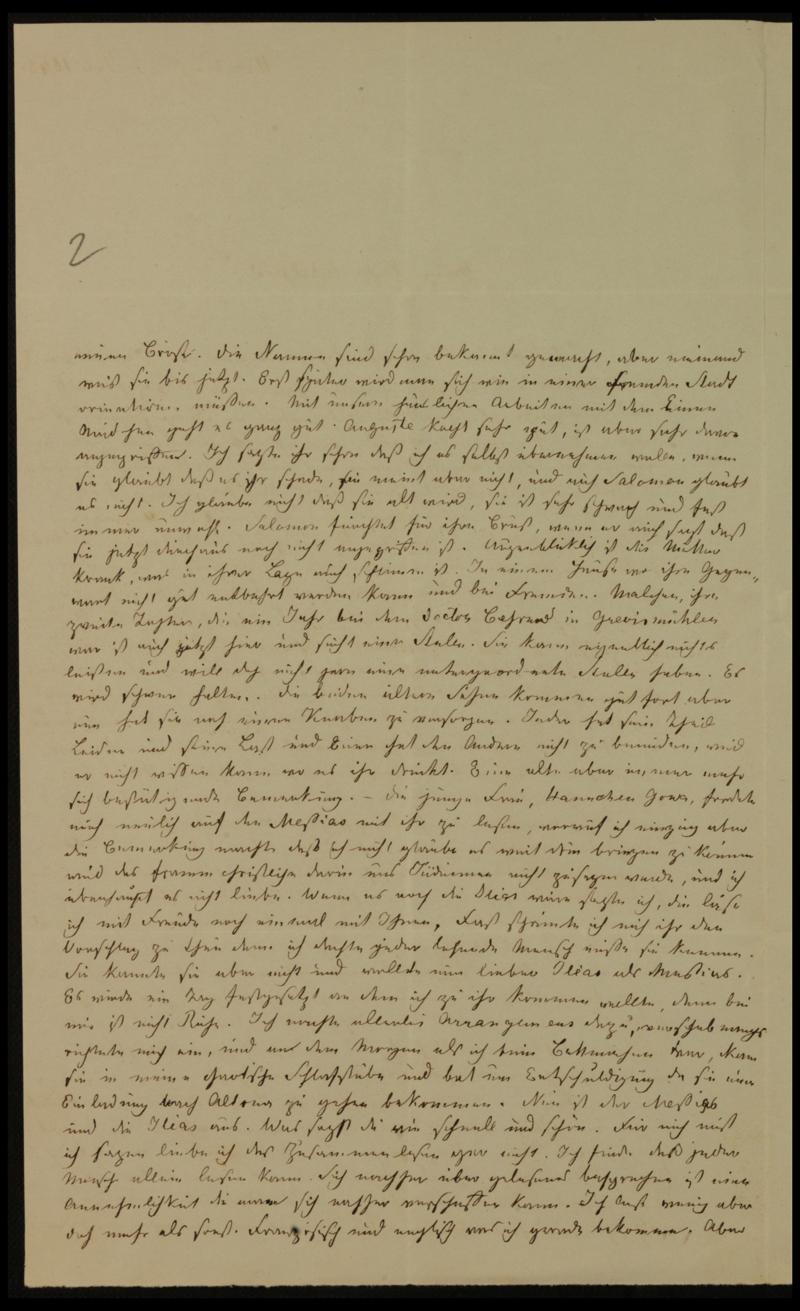 2
neuen Börse. Die Namen sind schon bekannt gemacht, aber niemand
weiß sie bis jetzt. Erst später wird man sich wie in einer fremden Stadt
orientiren müssen. Mit unsern häuslichen Arbeiten mit dem Einen
Mädchen geht es ganz gut. Auguste kocht sehr gut, ist aber sehr davon
angegriffen. Ich sagte ihr schon daß ich es selbst übernehmen wolle, wenn
sie glaubt daß es ihr schade, sie meint aber nicht, und auch Salomon glaubt
es nicht. Ich glaube nicht daß sie alt wird, sie ist sehr schwach und fast
immer unwohl. Salomon fürchtet für ihre Brust, wenn er auch sagt daß
sie jetzt durchaus noch nicht angegriffen ist. Augenblicklich ist die Mutter
krank, was in ihrer Lage auch schlimm ist. In einem Hause wo ihre Gegen-
wart nicht gut entbehrt werden kann und bei Fremden. Malchen, ihre
zweite Tochter, die ein Jahr bei dem Doctor Behrend in Grevismühlen
war ist auch jetzt hier und sucht eine Stelle. Sie kann eigentlich nichts
leisten und will doch nicht gern eine untergeordnete Stelle haben. Es
wird schwer halten. Die beiden ältern Söhne kommen gut fort aber
nun hat sie noch einen Knaben zu versorgen. Jeder hat sein Theil
Leiden und seine Last und Keiner hat den Andern nicht zu beneiden, weil
er nicht wissen kann wo es ihn drückt. Eine alte aber immer mehr
sich bestätigende Bemerkung. – Die junge Frau, Hannchen, forderte
mich neulich auf den Messias mit ihr zu lesen, worauf ich einging aber
die Bemerkung machte daß ich nicht glaube es weit drin bringen zu können
weil das fromm christliche darin uns Jüdinnen nicht zusagen werde, und ich
überhaupt es nicht liebe. Wenn es noch die Ilias wäre sagte ich, die läse
ich mit Freude noch einmal mit Ihnen, Fast schämte ich mich ihr den
Vorschlag zu thun denn ich dachte jeder lesende Mensch müsse sie kennen.
Sie kannte sie aber nicht und wollte nun lieber Ilias als Messias.
Es wurde ein Tag festgesetzt an dem ich zu ihr kommen wollte, denn bei
mir ist nicht Ruhe. Ich machte allerlei Arrangemens dazu, verschob manches
richtete mich ein, und an dem Morgen als ich beim Bettmachen war, kam
sie in meine chaotische Schlafstube und bat um Entschuldigung da sie eine
Einladung nach Altona zu gehen bekommen. Nun ist der Messias
und die Ilias aus. Was sagst du wie schnell und schön. Für mich muß
ich sagen liebe ich das Zusammenlesen gar nicht. Ich finde daß jeder
Mensch allein lesen kann. Sich nachher über gelesenes besprechen ist eine
Annehmlichkeit die man sich nachher verschaffen kann. Ich lese wenig aber
doch mehr als sonst. Französisch und englisch was ich gerade bekomme. Aber